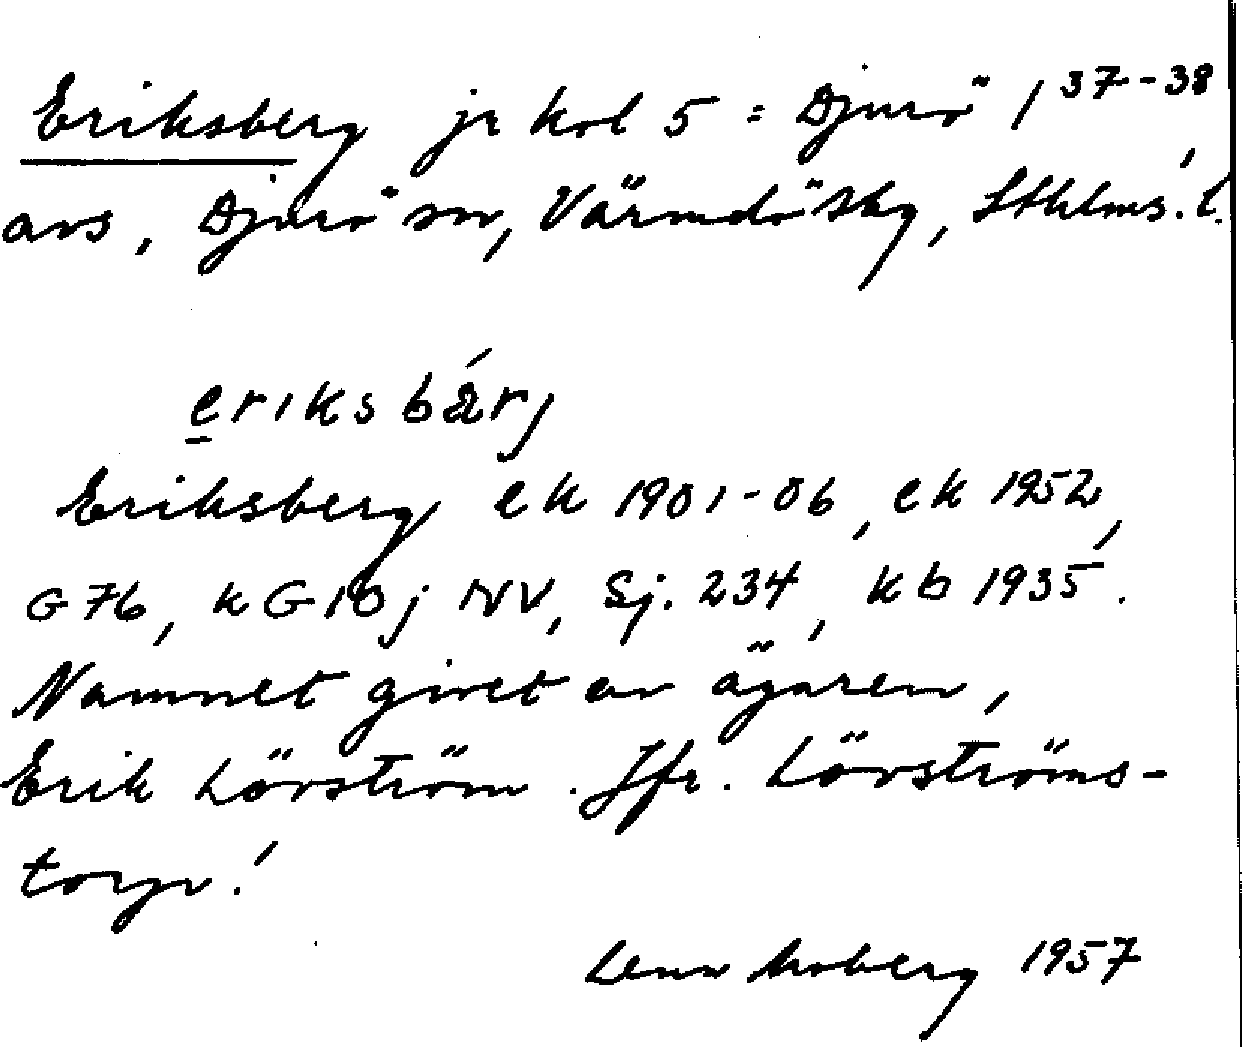 Eriksberg jr kol 5 = Djurö 1 37-38,
avs, Djurö sn, Värmdö skg, Sthlms. l.
eriksbärj
Eriksberg ek 1901-06, ek 1952,
G76, k G10j NV, Sj. 234, kb 1935.
Namnet givet av ägaren,
Erik Lövström. Jfr. Lövströms-
torp!
Lena Moberg 1957